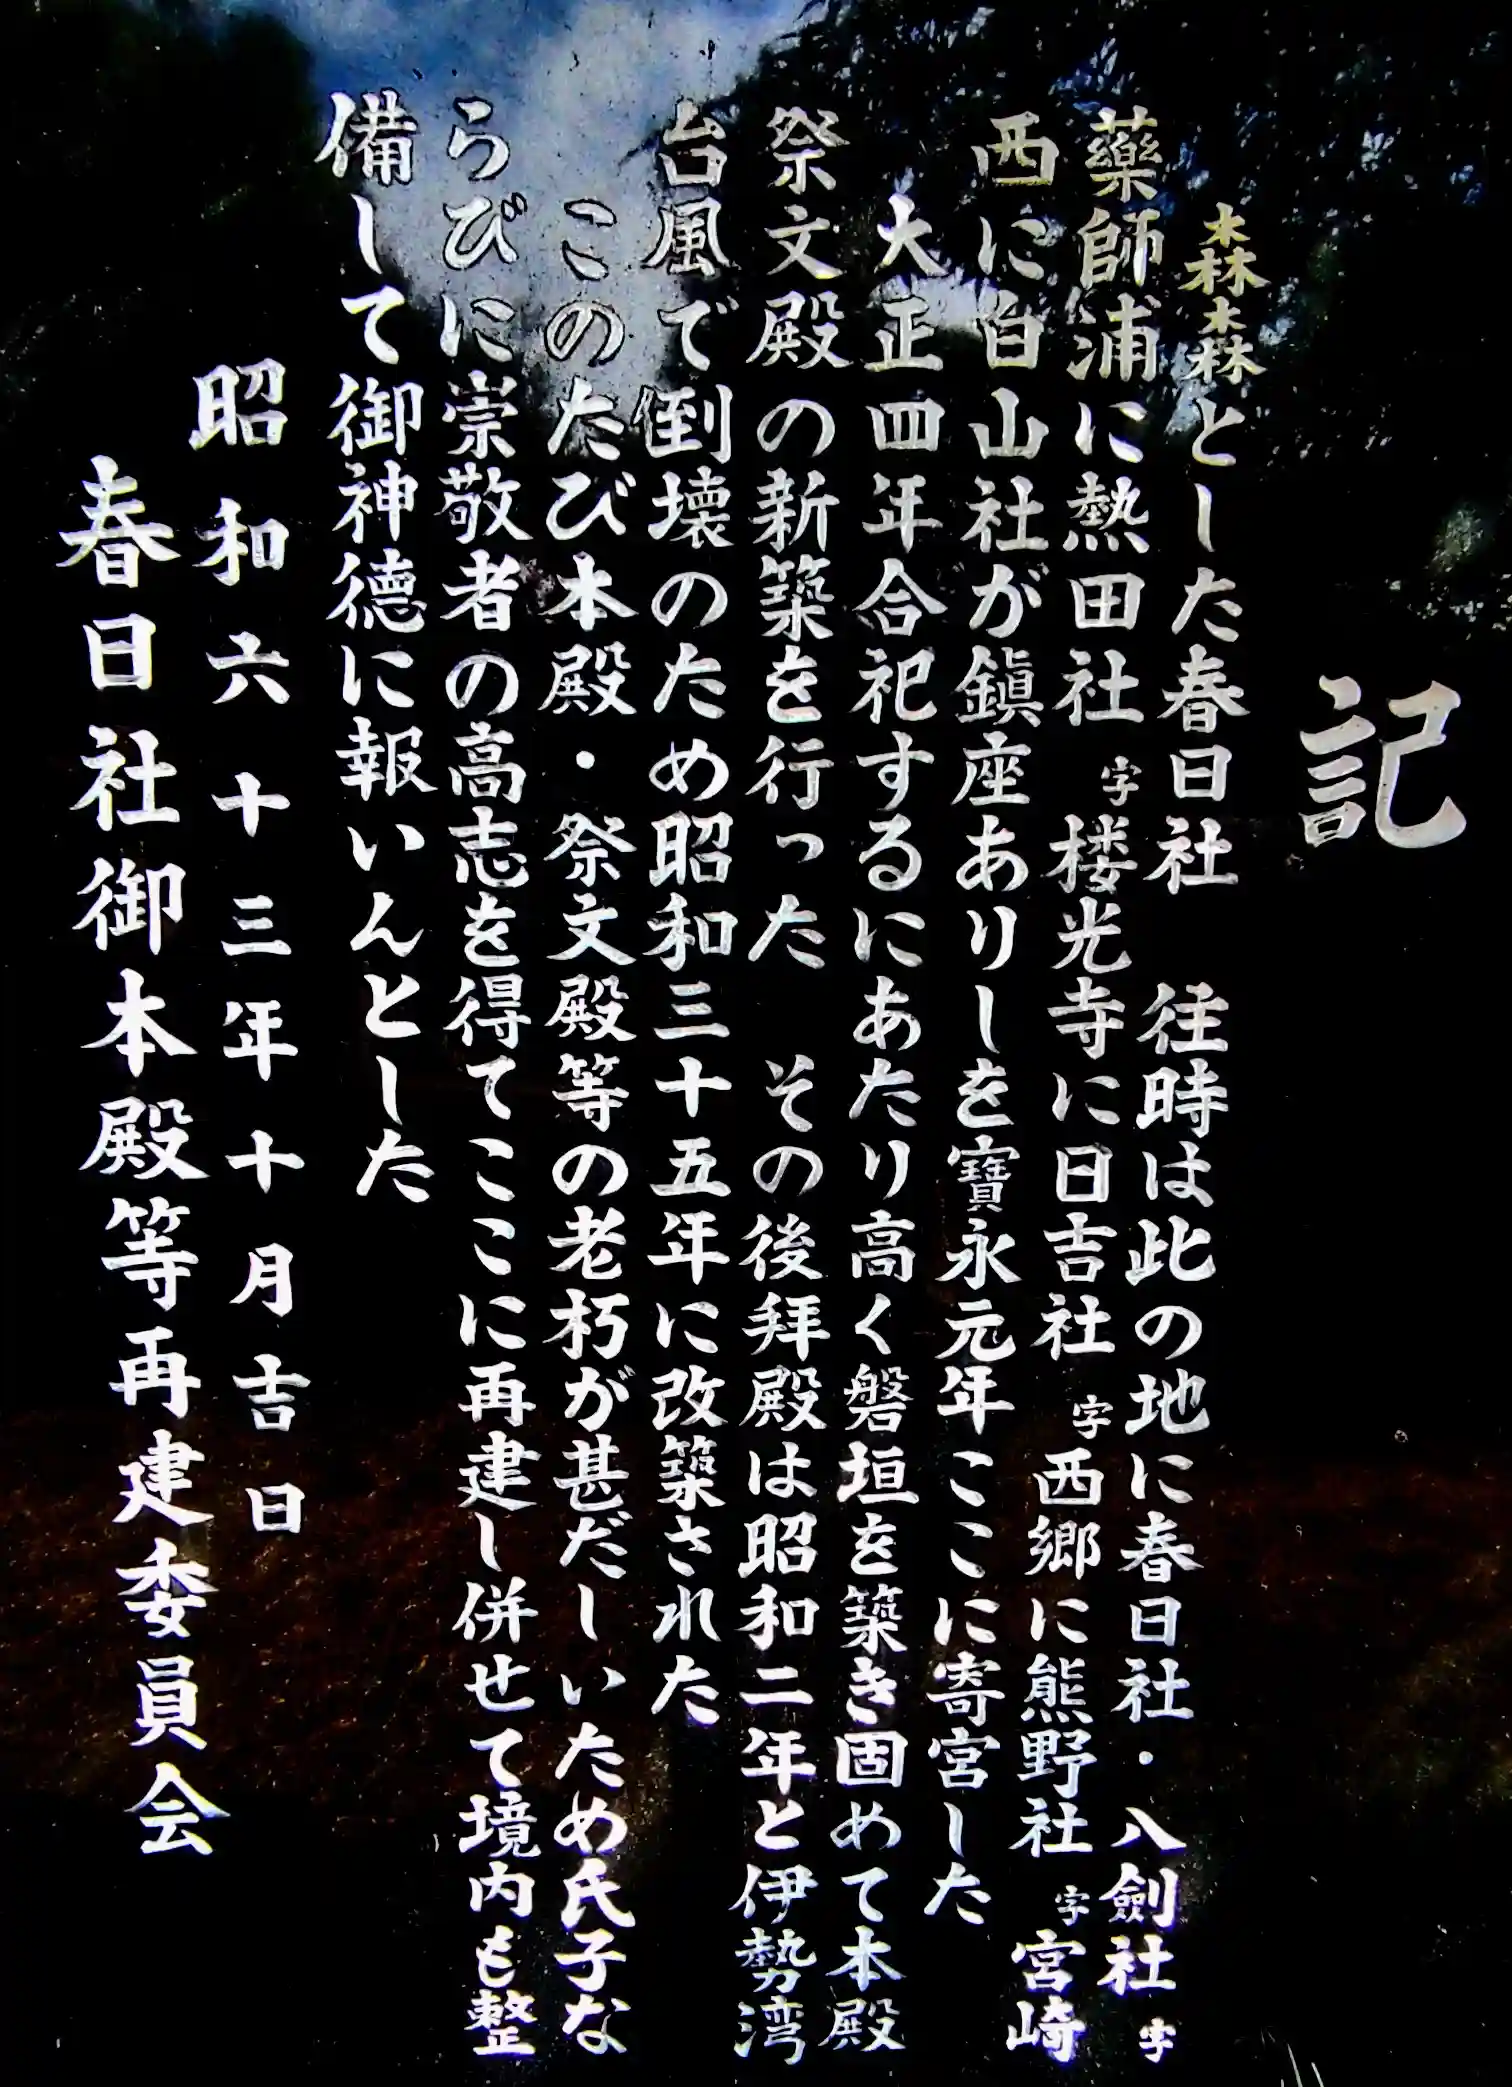 記
森森とした春日社　往時は此の地に春日社・八劍社 字
藥師浦に熱田社 字楼光寺に日吉社 字西郷に熊野社 字宮崎
西に白山社が鎭座ありしを寶永元年ここに寄宮した
大正四年合祀するにあたり高く磐垣を築き固めて本殿
祭文殿の新築を行った　その後拜殿は昭和二年と伊勢湾
台風で倒壊のため昭和三十五年に改築された
このたび本殿・祭文殿等の老朽が甚だしいため氏子な
らびに崇敬者の高志を得てここに再建し併せて境内も整
備して御神徳に報いんとした
昭和六十三年十月吉日
春日社御本殿等再建委員会